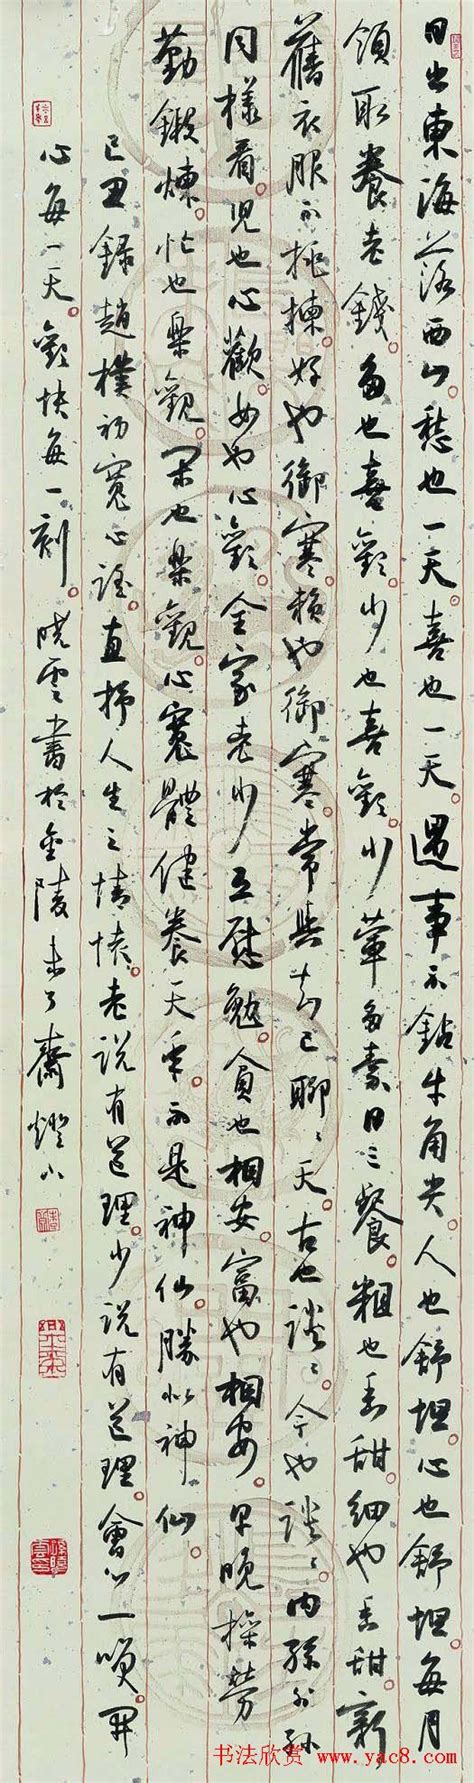 日出東海落西山。愁也一天。喜也一天。遇事不鈷牛角尖。人也舒坦。心也舒坦。每月
領取養老錢。多也喜歡。少也喜歡。少葷多素日三餐。粗也香甜。細也香甜。新
舊衣服不挑揀。好也御寒。賴也御寒。常與知己聊聊天。古也談談。今也談談。内孫外孫
同樣看。兒也心歡。女也心歡。全家老少互慰勉。貧也相安。富也相安。早晚操勞
勤鍛煉。忙也樂觀。閑也樂觀。心寬體健養天年。不是神仙。勝似神仙
己丑録趙樸初寬心謠。直抒人生之情懷。老説有道理。少説有道理。會心一唄。開
心每一天。歡快每一刻。曉雲書於金陵未了齋燈下
书法欣赏 www.yac8.com